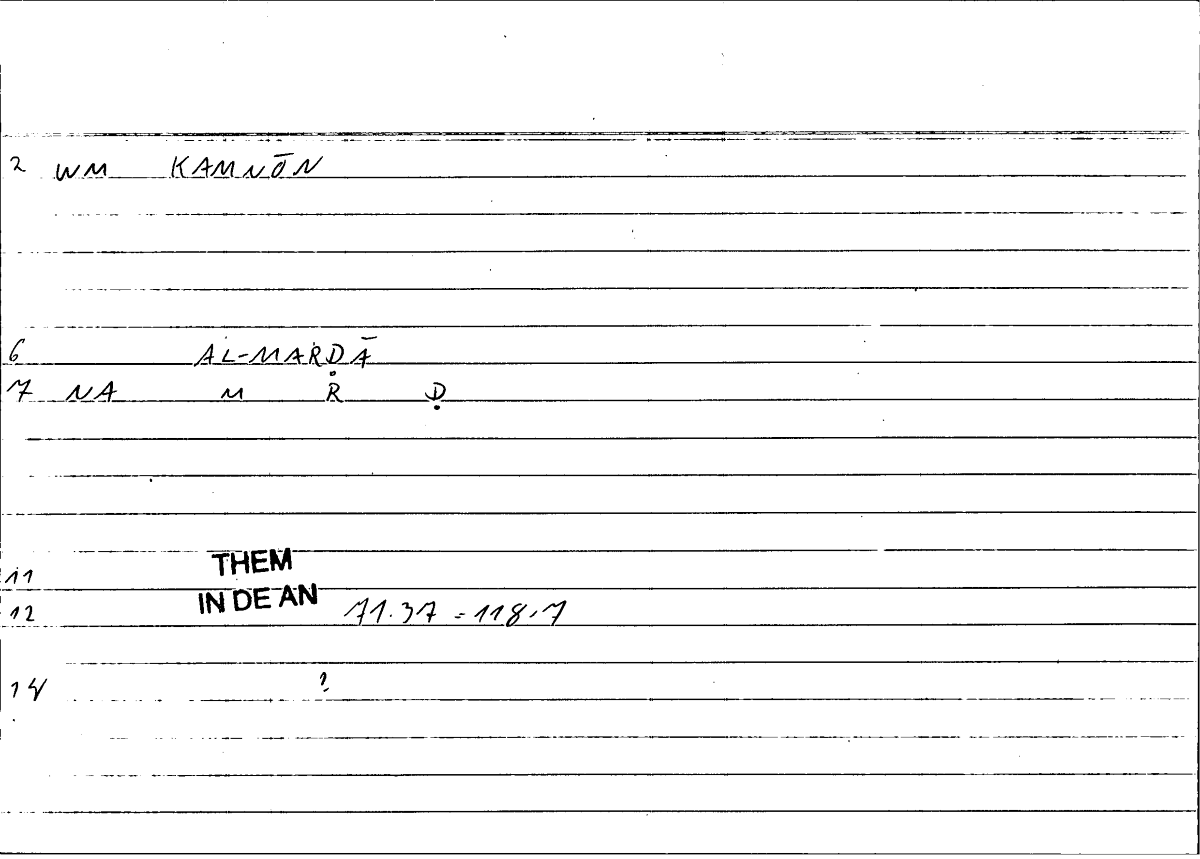 2 WM KAMNŌN
6 AL-MARḌĀ
7 NA M R Ḍ
11 THEM
12 IN DE AN 71.37 = 118.7
14 ?